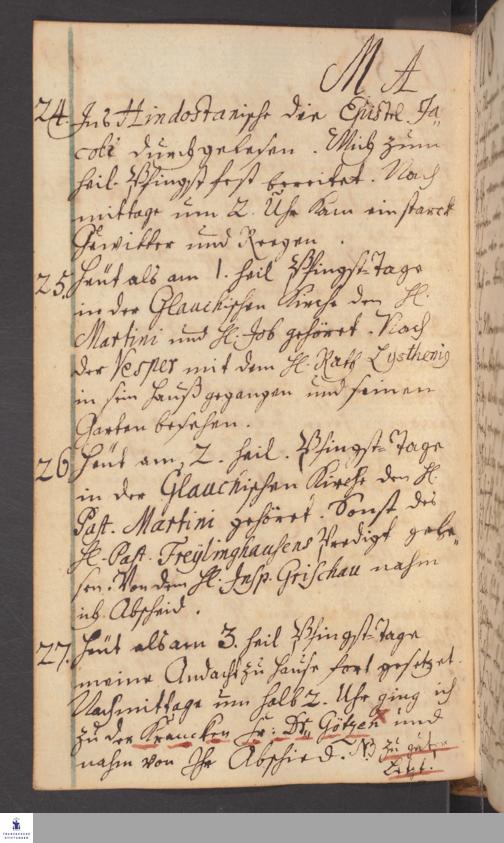 MA
24. Ins Hindostanische die Epistel Ja„
cobi durchgelesen. Mich zum
heil. Pfingstfest bereitet. Nach
mittage um 2. Uhr kam ein starck
Gewitter und Reegen.
25. Heut als am 1. heil Pfingst-Tage
in der Glauchischen Kirche den H.
Martini und H. Job gehöret. Nach
der Vesper mit dem H. Rath Lysthenig
in sein Hauß gegangen und seinen
Garten besehen.
26 Heut am 2. heil. Pfingst-Tage
in der Glauchischen Kirche den H.
Past. Martini gehöret. Sonst des
H. Past. Freÿlinghausens Predigt gele„
sen. Von dem H. Insp. Grischau nahm
ich Abscheid.
27. Heut als am 3. heil Pfingst-Tage
meine Andacht zu Hause fort gesetzet.
Nachmittage um halb 2. Uhr ging ich
zu der Krancken Fr: Dr. Götzen und
nahm von Ihr Abschied. NB zu guter
Letzt.
FRANCKESCHE
STIFTUNGEN